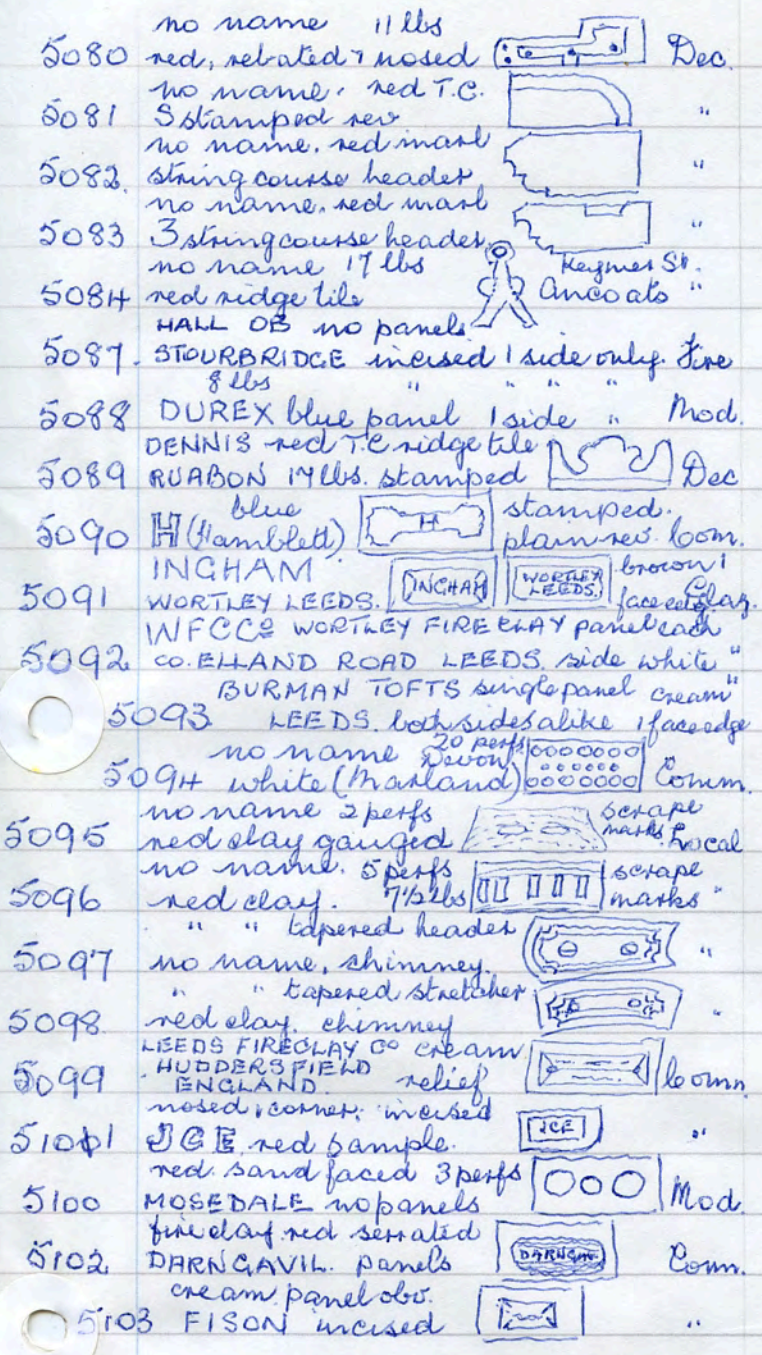 no name 11 lbs
5080 red, rebated & nosed Dec.
no name. red T.C.
5081 S stamped rev "
no name. red marl
5082. string course header "
no name. red marl
5083 3 string course header "
no name 17 lbs Keymer St.
5084 red ridge tile Ancoats "
HALL OB no panels
5087. STOURBRIDGE incised 1 side only. Fire
8 lbs " " " "
5088 DUREX blue panel 1 side " Mod.
DENNIS red T.C ridge tile
5089 RUABON 17 lbs. stamped Dec
blue stamped.
5090 H (Hamblett) H plain rev. Com.
INGHAM brown 1
5091 WORTLEY LEEDS. INGHAM WORTLEY LEEDS. face edge Glaz.
WFCCo WORTLEY FIRE CLAY panel each
5092 CO. ELLAND ROAD LEEDS. side white "
BURMAN TOFTS single panel cream "
5093 LEEDS. both sides alike 1 face edge
no name 20 perfs Devon
5094 white (Marland) Comm.
no name 2 perfs scrape
5095 red clay gauged marks. Local
no name. 5 perfs scrape
5096 red clay. 7½ lbs marks "
" " tapered header
5097 no name, chimney. "
" " tapered stretcher
5098 red clay. chimney "
LEEDS FIRECLAY CO cream
HUDDERSFIELD
5099 ENGLAND. relief Comn.
nosed, corner, incised
5101 JCE red sample. JCE "
red. sand faced 3 perfs
5100 MOSEDALE no panels Mod.
fire clay red serrated
5102 DARNGAVIL. panels DARNGAV. Comn.
cream panel obv.
5103 FISON incised "